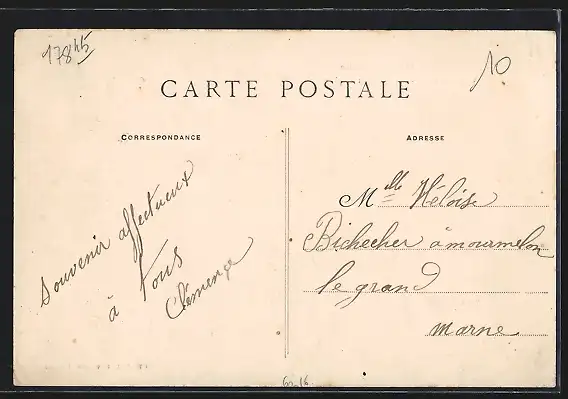 17845
10
CARTE POSTALE
CORRESPONDANCE
ADRESSE
souvenir affectueux
à tous
Clémence
Mlle Héloïse
Bichecher à mourmelon
le grand
marne